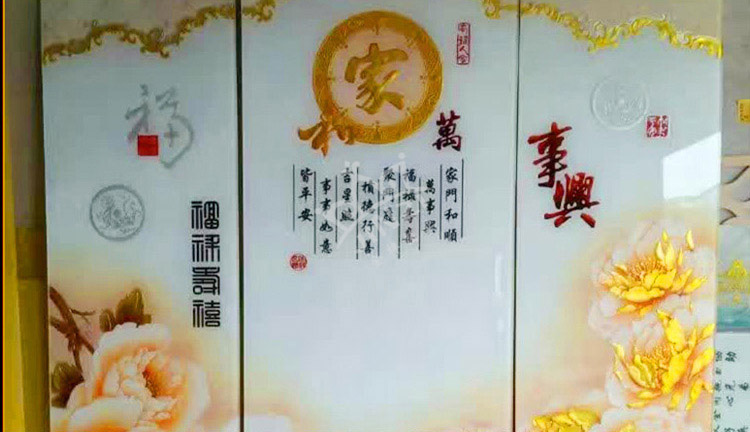 家
和
萬
事興
福
福祿壽禧
家門和順
萬事興
福祿壽喜
聚門庭
積德行善
吉星
事事如意
皆平安